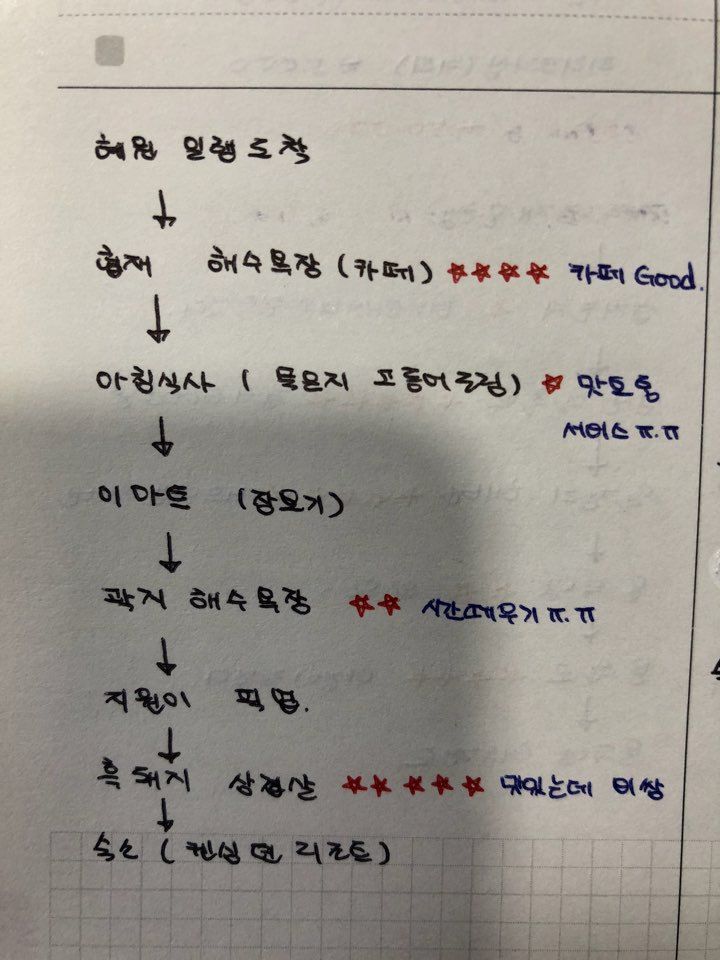 혜원 일행 도착
↓
협재 해수욕장 (카페) ☆☆☆☆ 카페 Good.
↓
아침식사 ( 묵은지 고등어조림) ☆ 맛보통
서비스 ㅠ.ㅠ
↓
이마트 (장보기)
↓
곽지 해수욕장 ☆☆ 시간때우기 ㅠ.ㅠ
↓
지원이 픽업.
↓
흑돼지 삼겹살 ☆☆☆☆☆ 맛있는데 비쌈
↓
숙소 ( 켄싱턴 리조트)